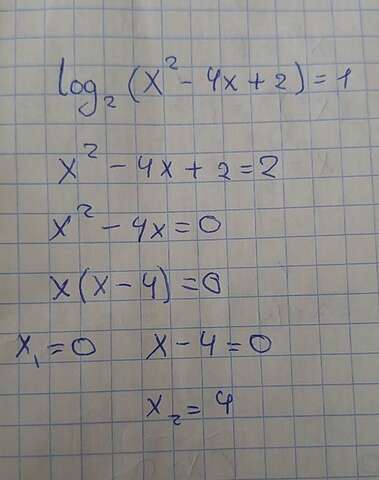 log₂(x² - 4x + 2) = 1
x² - 4x + 2 = 2
x² - 4x = 0
x(x - 4) = 0
x₁ = 0 x - 4 = 0
x₂ = 4